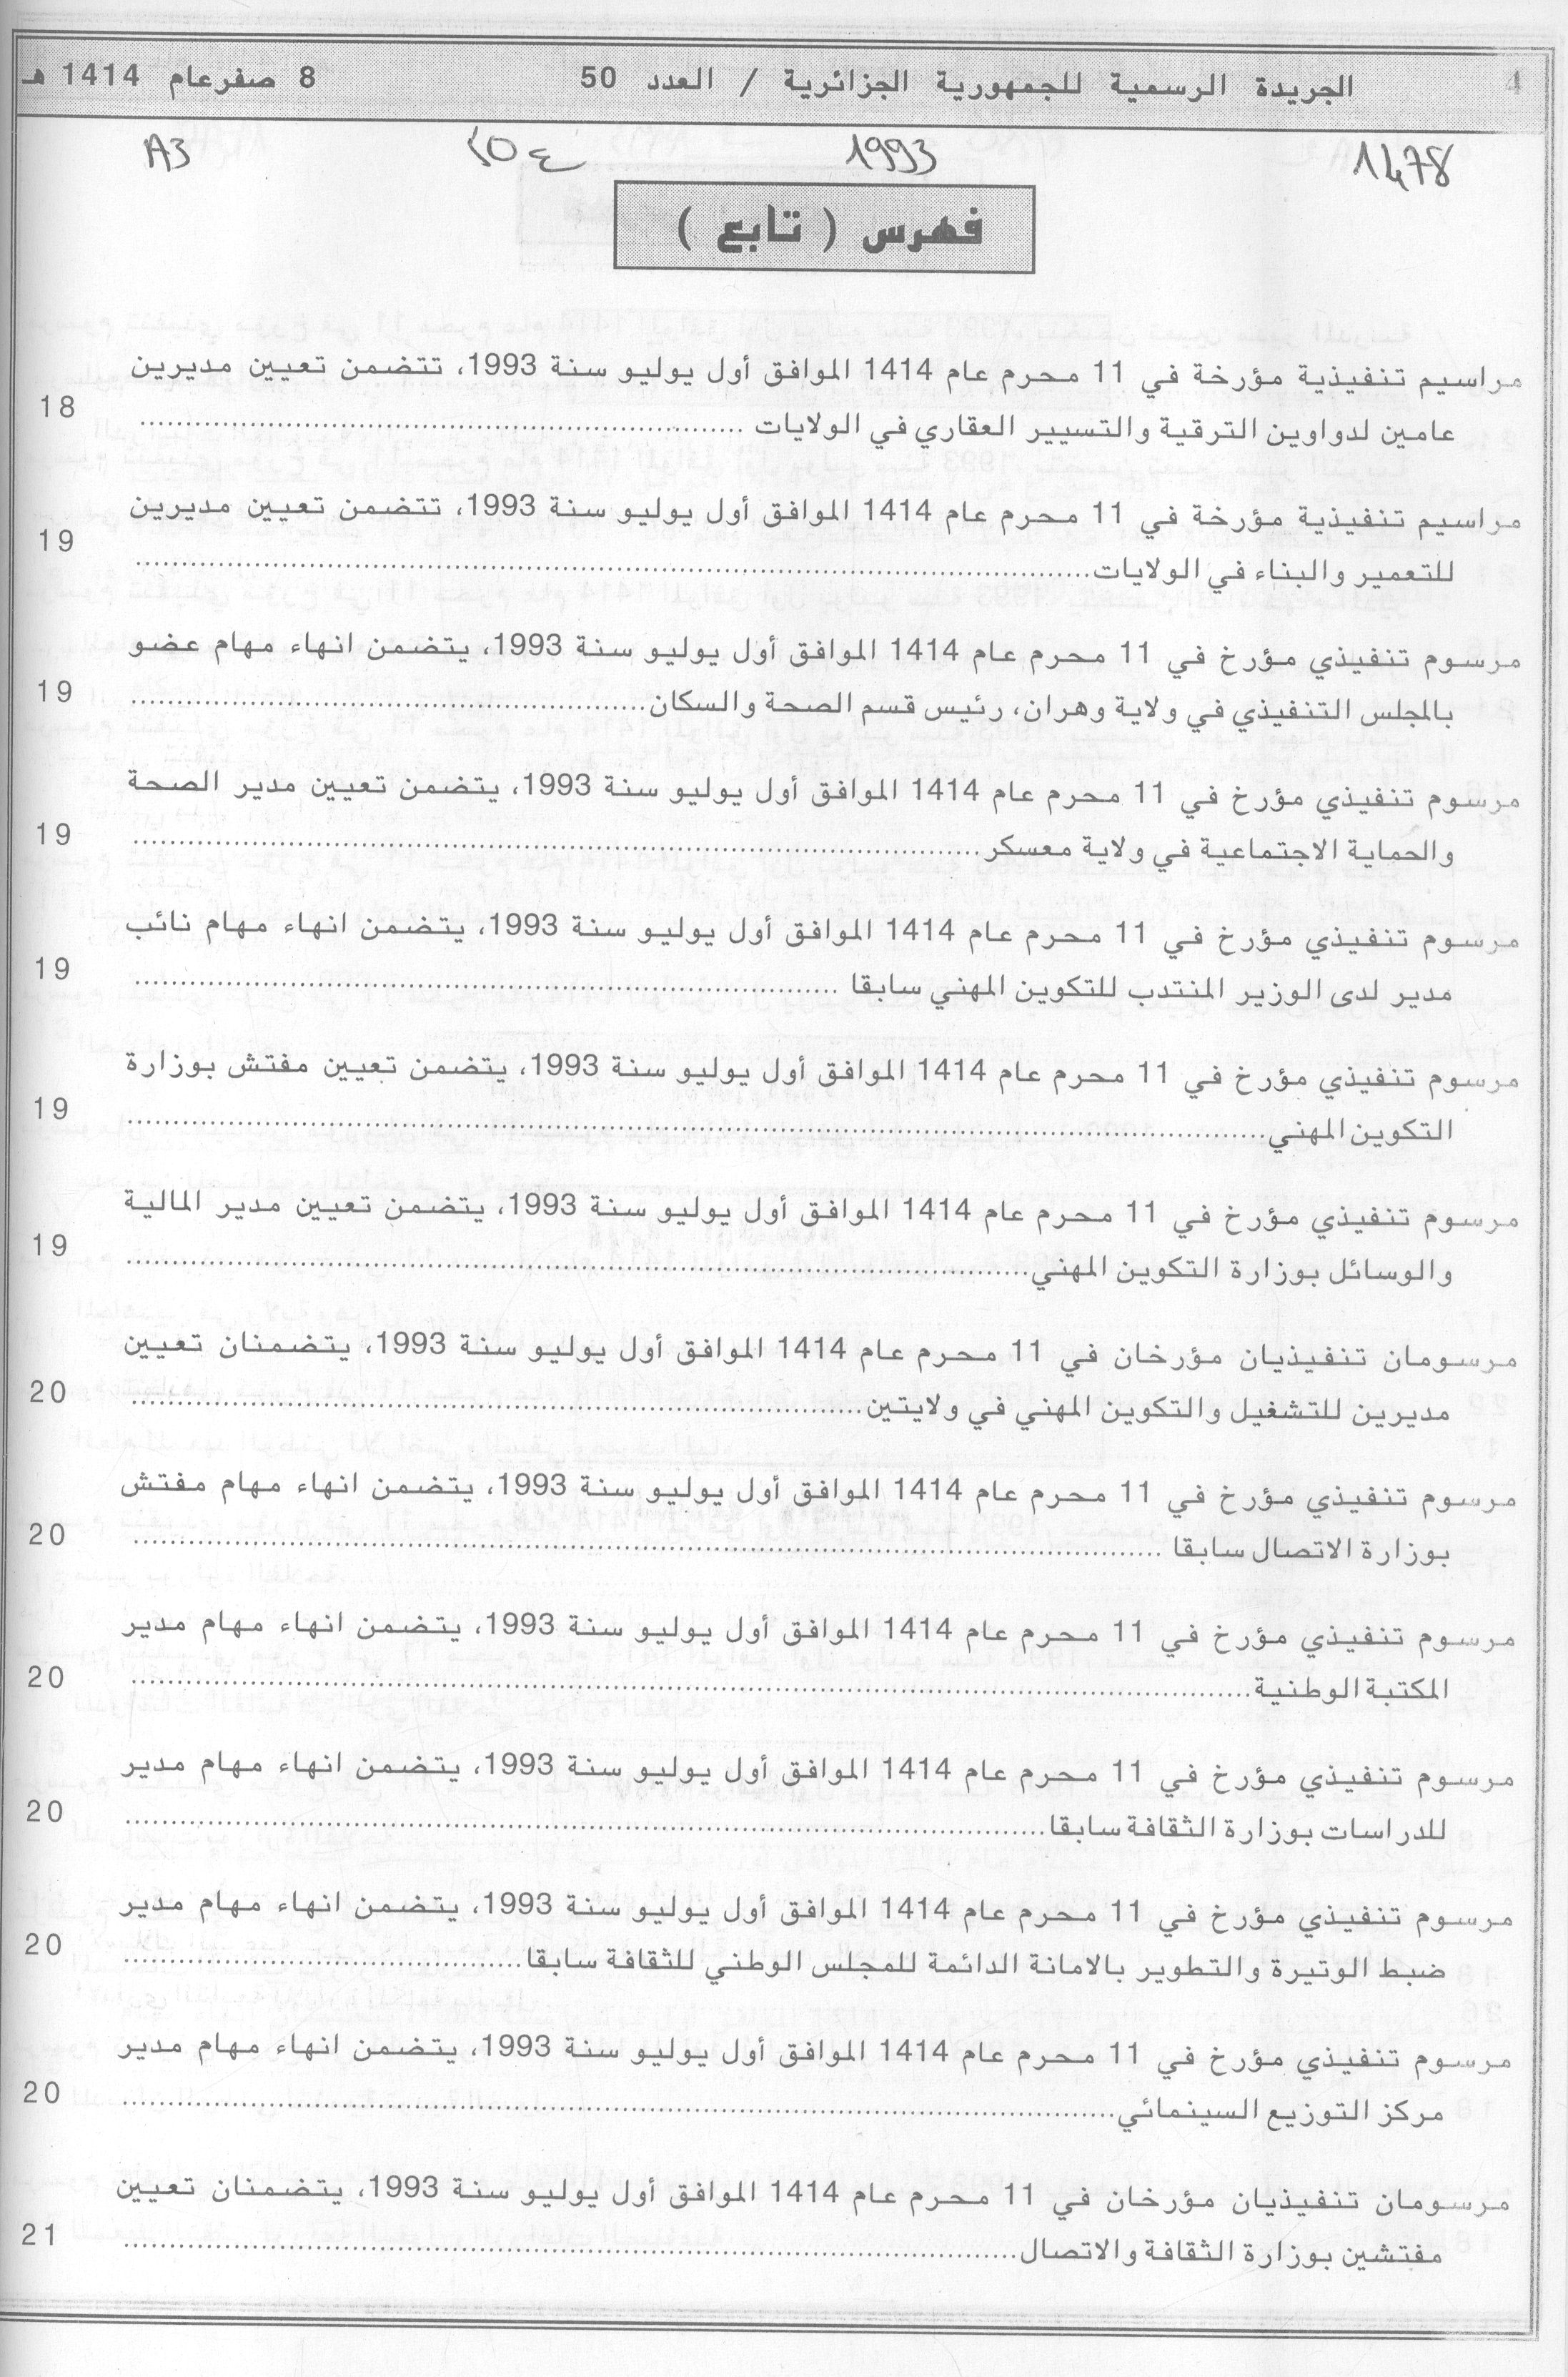 4 الجريدة الرسمية للجمهورية الجزائرية / العدد 50 8 صفر عام 1414 هـ
1478 1993 50 ع A3
فهرس ( تابع )
مراسيم تنفيذية مؤرخة في 11 محرم عام 1414 الموافق أول يوليو سنة 1993، تتضمن تعيين مديرين
عامين لدواوين الترقية والتسيير العقاري في الولايات ........ 18
مراسيم تنفيذية مؤرخة في 11 محرم عام 1414 الموافق أول يوليو سنة 1993، تتضمن تعيين مديرين
للتعمير والبناء في الولايات........ 19
مرسوم تنفيذي مؤرخ في 11 محرم عام 1414 الموافق أول يوليو سنة 1993، يتضمن انهاء مهام عضو
بالمجلس التنفيذي في ولاية وهران، رئيس قسم الصحة والسكان........ 19
مرسوم تنفيذي مؤرخ في 11 محرم عام 1414 الموافق أول يوليو سنة 1993، يتضمن تعيين مدير الصحة
والحماية الاجتماعية في ولاية معسكر........ 19
مرسوم تنفيذي مؤرخ في 11 محرم عام 1414 الموافق أول يوليو سنة 1993، يتضمن انهاء مهام نائب
مدير لدى الوزير المنتدب للتكوين المهني سابقا ........ 19
مرسوم تنفيذي مؤرخ في 11 محرم عام 1414 الموافق أول يوليو سنة 1993، يتضمن تعيين مفتش بوزارة
التكوين المهني........ 19
مرسوم تنفيذي مؤرخ في 11 محرم عام 1414 الموافق أول يوليو سنة 1993، يتضمن تعيين مدير المالية
والوسائل بوزارة التكوين المهني........ 19
مرسومان تنفيذيان مؤرخان في 11 محرم عام 1414 الموافق أول يوليو سنة 1993، يتضمنان تعيين
مديرين للتشغيل والتكوين المهني في ولايتين........ 20
مرسوم تنفيذي مؤرخ في 11 محرم عام 1414 الموافق أول يوليو سنة 1993، يتضمن انهاء مهام مفتش
بوزارة الاتصال سابقا ........ 20
مرسوم تنفيذي مؤرخ في 11 محرم عام 1414 الموافق أول يوليو سنة 1993، يتضمن انهاء مهام مدير
المكتبة الوطنية........ 20
مرسوم تنفيذي مؤرخ في 11 محرم عام 1414 الموافق أول يوليو سنة 1993، يتضمن انهاء مهام مدير
للدراسات بوزارة الثقافة سابقا........ 20
مرسوم تنفيذي مؤرخ في 11 محرم عام 1414 الموافق أول يوليو سنة 1993، يتضمن انهاء مهام مدير
ضبط الوتيرة والتطوير بالامانة الدائمة للمجلس الوطني للثقافة سابقا........ 20
مرسوم تنفيذي مؤرخ في 11 محرم عام 1414 الموافق أول يوليو سنة 1993، يتضمن انهاء مهام مدير
مركز التوزيع السينمائي........ 20
مرسومان تنفيذيان مؤرخان في 11 محرم عام 1414 الموافق أول يوليو سنة 1993، يتضمنان تعيين
مفتشين بوزارة الثقافة والاتصال........ 21